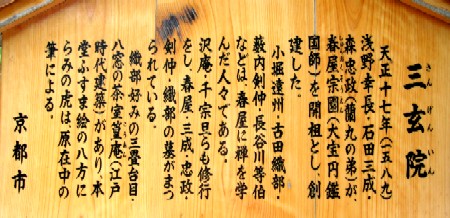 三玄院
さん げん いん
天正十七年(一五八九)
浅野幸長・石田三成・
森忠政(蘭丸の弟)が、
春屋宗園(大宝円鑑
国師)を開祖とし、創
建した。
小堀遠州・古田織部・
薮内剣仲・長谷川等伯
などは、春屋に禅を学
んだ人々である。
沢庵・千宗旦らも修行
をし、春屋・三成・忠政・
剣仲・織部の墓がまつ
られている。
織部好みの三畳台目・
八窓の茶室篁庵(江戸
時代建築)があり、本
堂ふすま絵の八方に
らみの虎は原在中の
筆による。
京都市